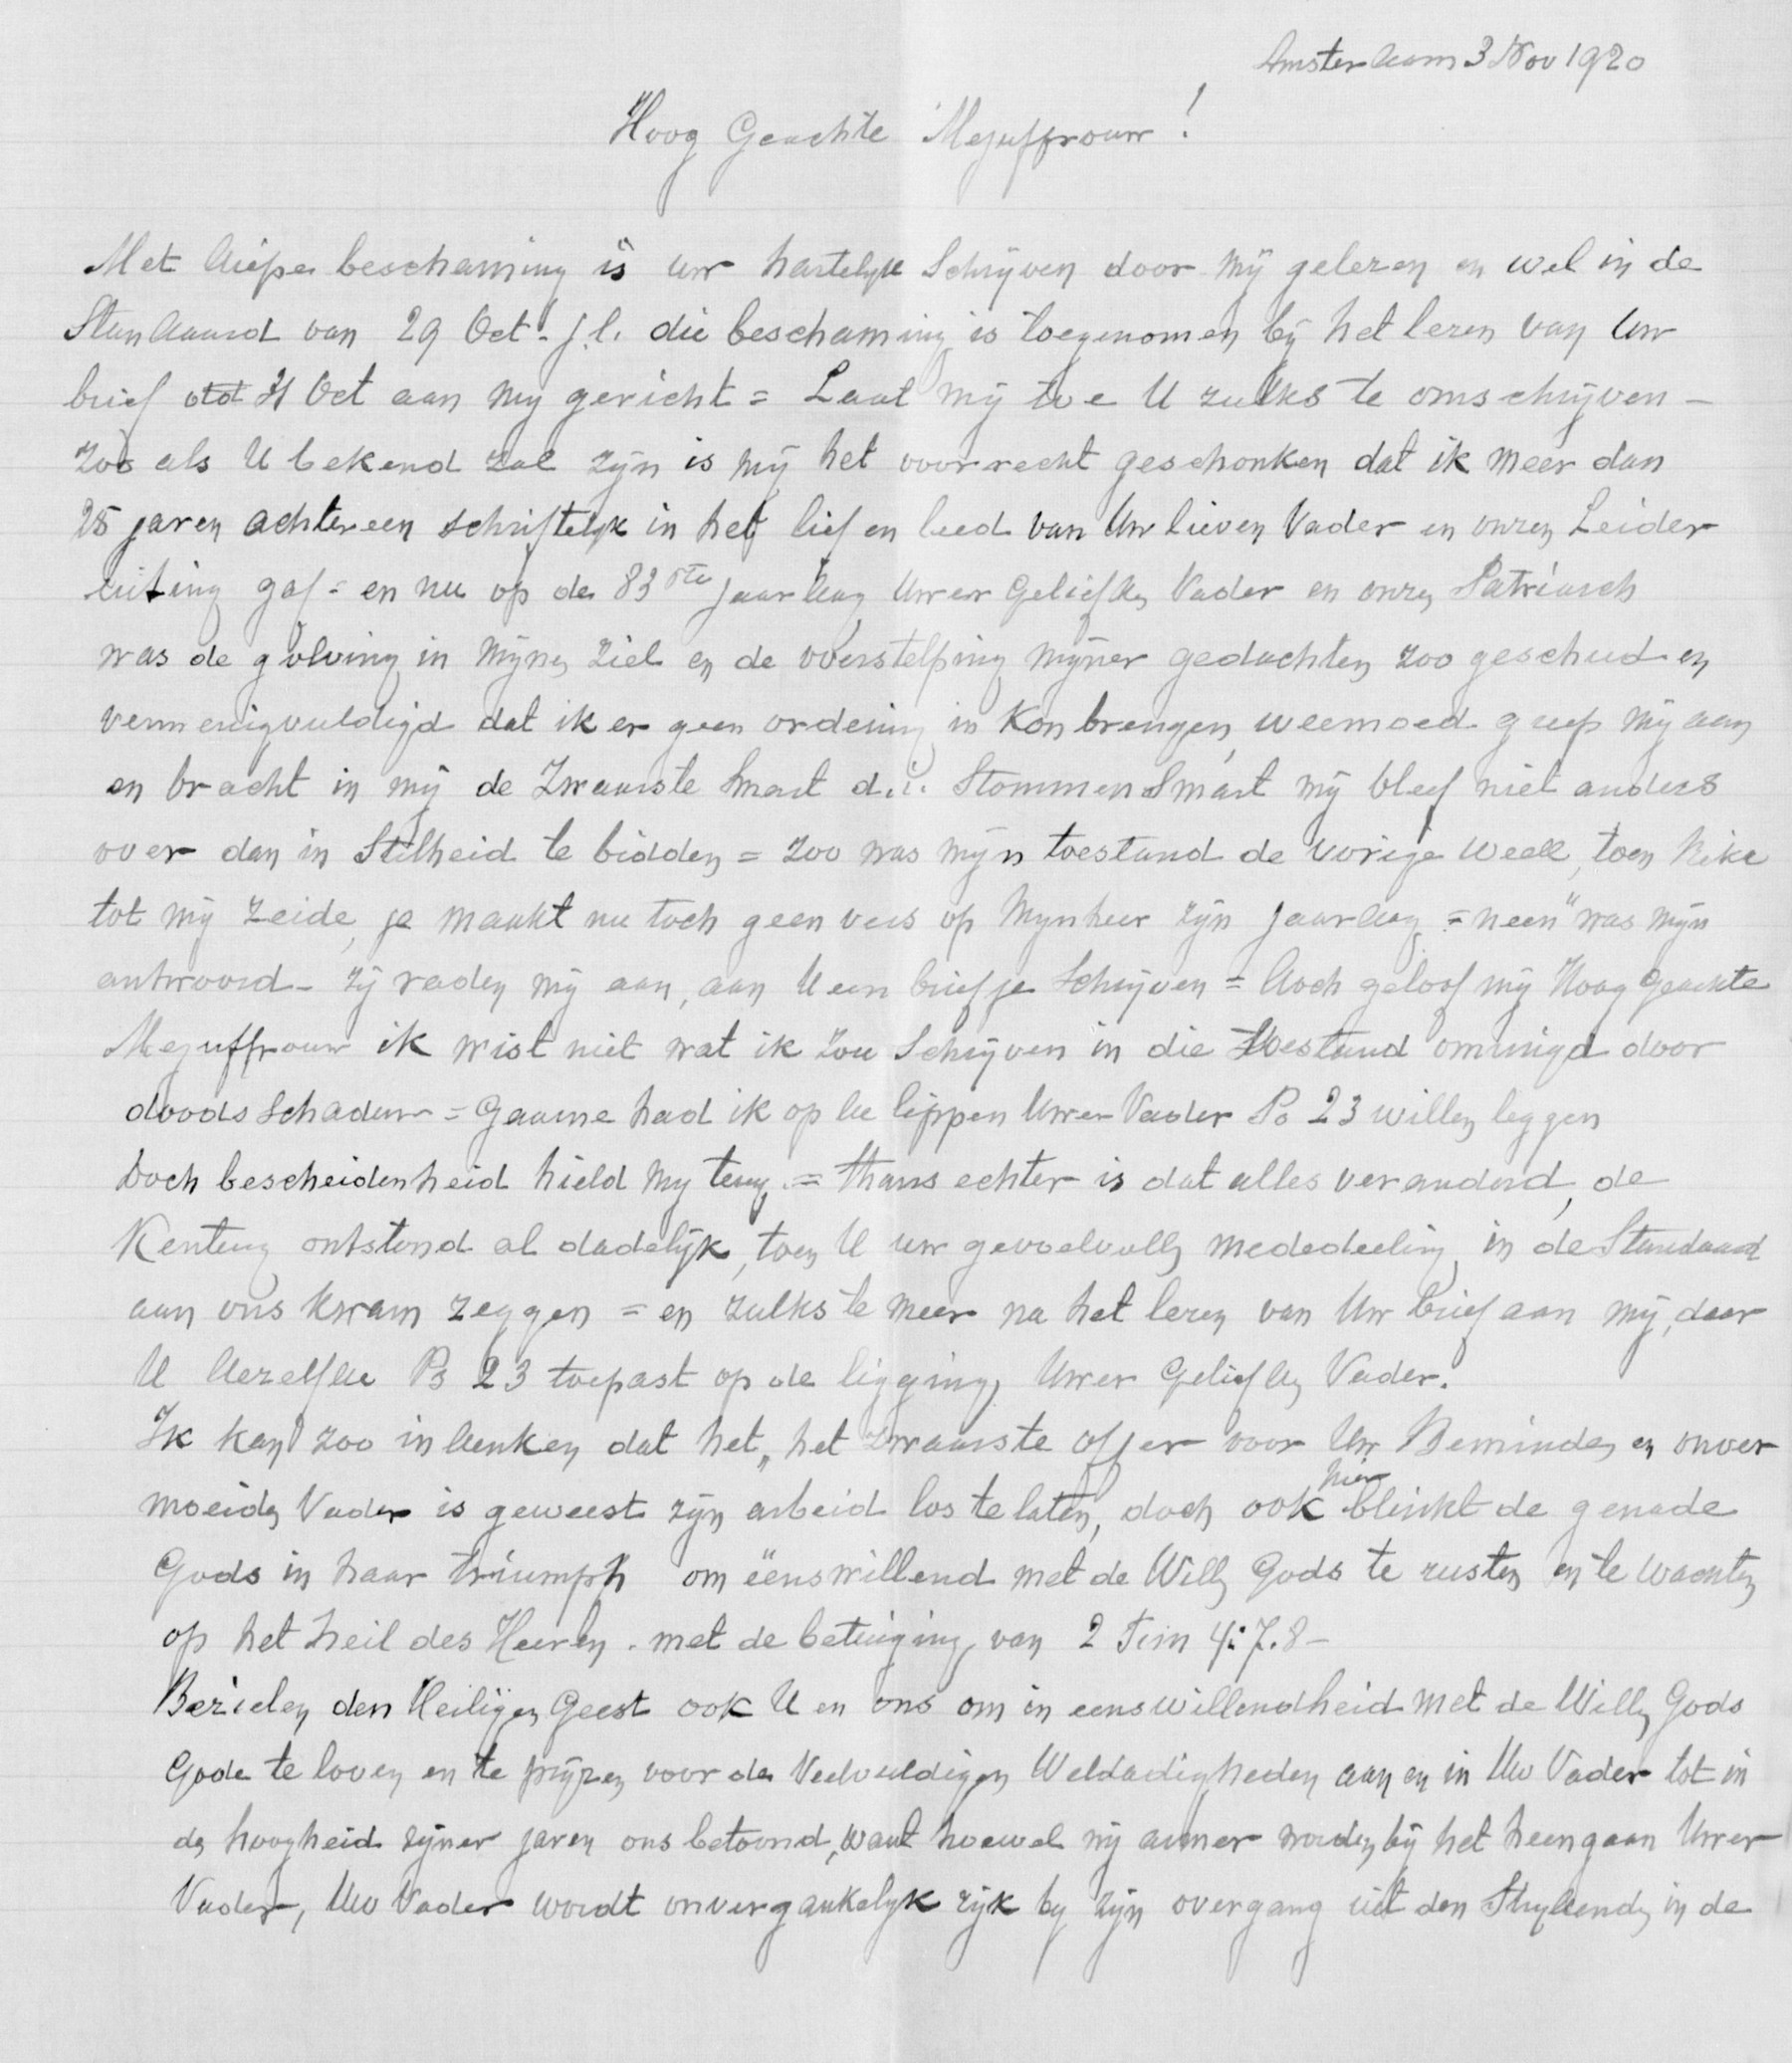 Amsterdam 3 Nov 1920
Hoog Geachte Mejuffrouw!
Met diepe beschaming is uw hartelijk Schrijven door mij gelezen en wel in de
Standaard van 29 Oct. j.l. die beschaming is toegenomen bij het lezen van Uw
brief 31 Oct aan mij gericht = Laat mij toe U zulks te omschrijven –
zoo als U bekend zal zijn is mij het voorrecht geschonken dat ik meer dan
25 jaren achtereen schriftelijk in het lief en leed van Uw lieven Vader en onzen Leider
uiting gaf = en nu op de 83ste jaardag Uwer Geliefden Vader en onzen Patriarch
was de golving in mijne ziel en de overstelping mijner gedachten zoo geschud en
vermenigvuldigd dat ik er geen ordening in kon brengen, weemoed greep mij aan
en bracht in mij de Zwaarste Smart d.i. Stommen Smart mij bleef niet anders
over dan in Stilheid te bidden = zoo was mijn toestand de vorige week, toen Rike
tot mij zeide, je maakt nu toch geen vers op Mijnheer zijn jaardag = neen" was mijn
antwoord – zij raden mij aan, aan U een briefje Schrijven = doch geloof mij Hoog Geachte
Mejuffrouw ik wist niet wat ik zou Schrijven in die toestand omringd door
doods schaduw = Gaarne had ik op de lippen Uwer Vader Ps 23 willen leggen
Doch bescheidenheid hield mij terug. = thans echter is dat alles veranderd, de
Kentering ontstond al dadelijk, toen U uw gevoelvolle mededeeling in de Standaard
aan ons kwam zeggen = en zulks te meer na het lezen van Uw brief aan mij, daar
U dezelfde Ps 23 toepast op de ligging Uwer Geliefden Vader.
Ik kan zoo indenken dat het „het zwaarste offer voor Uw Beminden en onver
moeiden Vader is geweest zijn arbeid los te laten, doch ook hier blinkt de genade
Gods in haar triumph om ëenswillend met de Wille Gods te rusten en te wachten
op het heil des Heeren. met de betuiging van 2 Tim 4:7.8 –
Beziele den Heiligen Geest ook U en ons om in eenswillendheid met de Wille Gods
Gode te loven en te prijzen voor de Veelvuldigen Weldadigheden aan en in Uw Vader tot in
de hoogheid zijner jaren ons betoond, want hoewel wij armer worden bij het heengaan Uwer
Vader, Uw Vader wordt onvergankelijk rijk bij zijn overgang uit den Strijdende in de